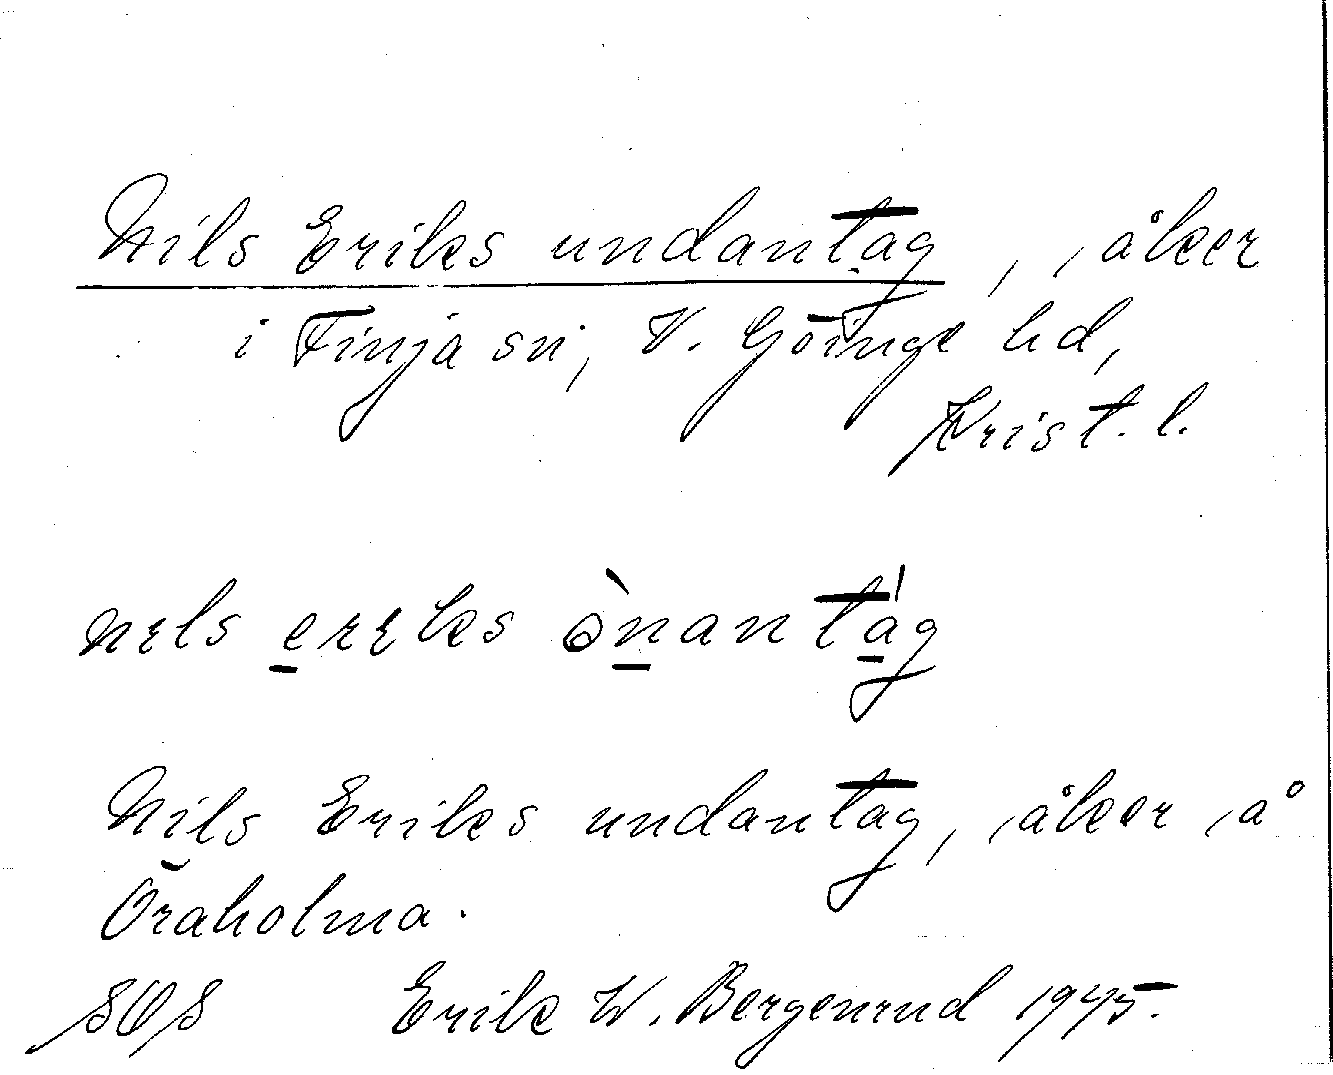 Nils Eriks undantag, åker
i Finja sn, V. Göinge hd,
Krist. l.
nɪls erɪks ònantág
Nils Eriks undantag, åker å
Öraholma.
SOS Erik W. Bergenrud 1945.